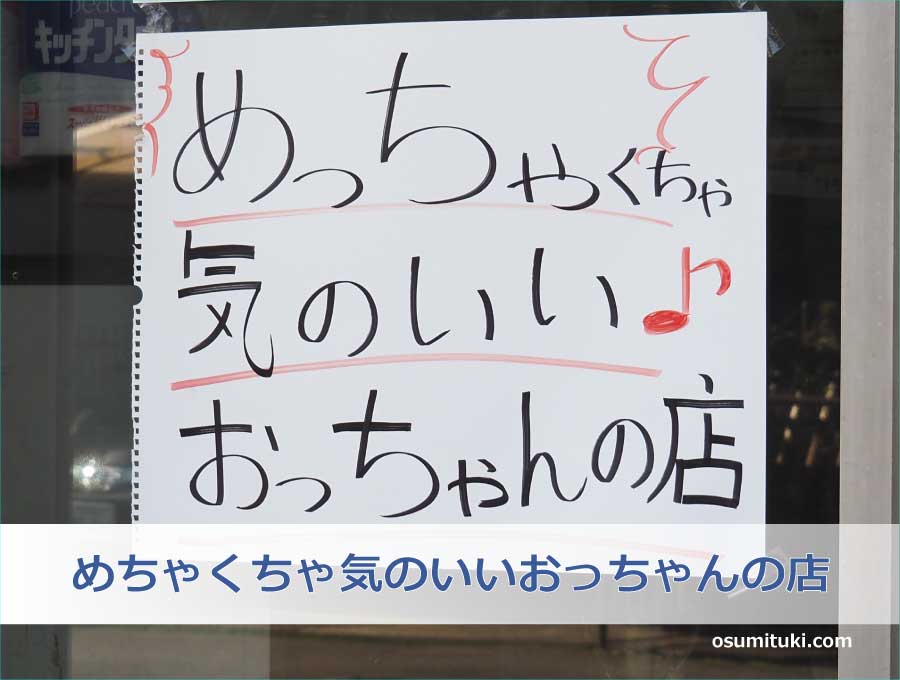 peach
キッチンタ
めっちゃくちゃ
気のいい♪
おっちゃんの店
めちゃくちゃ気のいいおっちゃんの店
osumituki.com